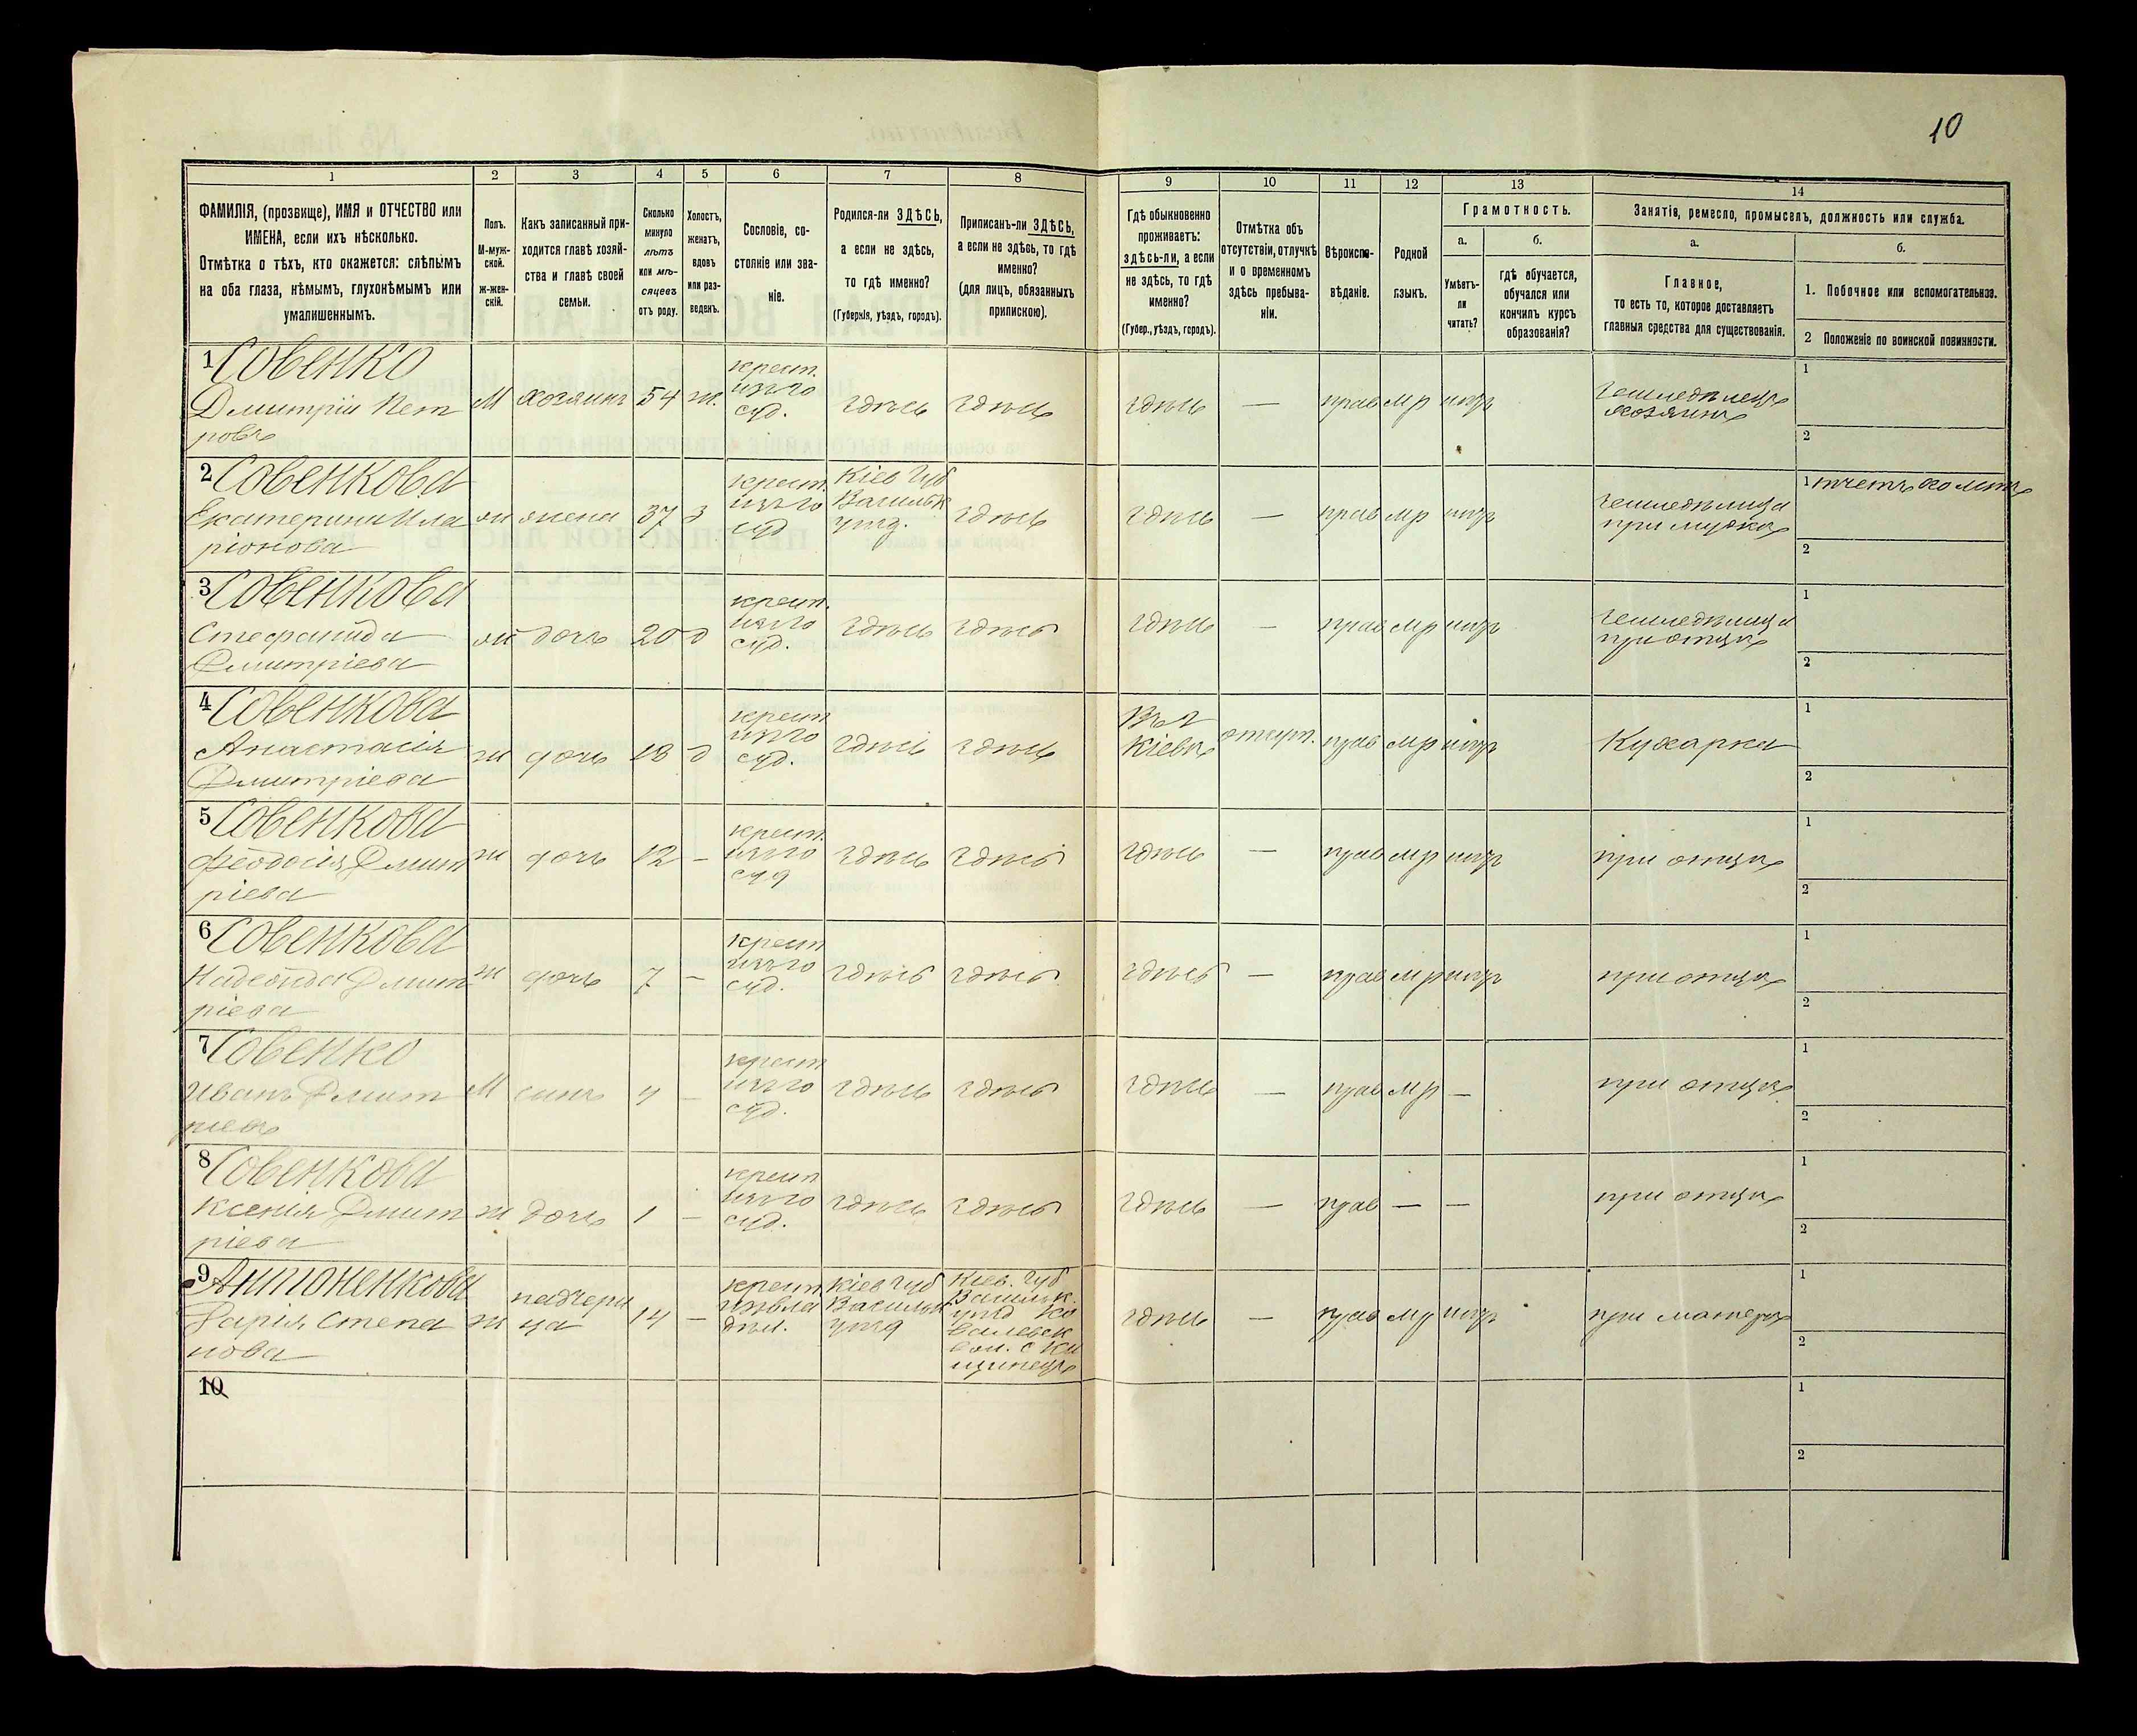 10
1
2
3
4
5
6
7
8
9
10
11
12
13
14
ФАМИЛІЯ, (прозвище), ИМЯ и ОТЧЕСТВО или
ИМЕНА, если ихъ нѣсколько.
Отмѣтка о тѣхъ, кто окажется: слѣпымъ
на оба глаза, нѣмымъ, глухонѣмымъ или
умалишеннымъ.
Полъ.
М-муж-
ской.
Ж-жен-
скій.
Какъ записанный при-
ходится главѣ хозяй-
ства и главѣ своей
семьи.
Сколько
минуло
лѣтъ
или мѣ-
сяцевъ
отъ роду.
Холостъ,
женатъ,
вдовъ
или раз-
веденъ.
Сословіе, со-
стояніе или зва-
ніе.
Родился-ли ЗДѢСЬ,
а если не здѣсь,
то гдѣ именно?
(Губернія, уѣздъ, городъ).
Приписанъ-ли ЗДѢСЬ,
а если не здѣсь, то гдѣ
именно?
(для лицъ, обязанныхъ
припискою).
Гдѣ обыкновенно
проживаетъ:
здѣсь-ли, а если
не здѣсь, то гдѣ
именно?
(Губер., уѣздъ, городъ).
Отмѣтка объ
отсутствіи, отлучкѣ
и о временномъ
здѣсь пребыва-
ніи.
Вѣроиспо-
вѣданіе.
Родной
языкъ.
Грамотность.
а.
Умѣетъ-
ли
читать?
б.
гдѣ обучается,
обучался или
кончилъ курсъ
образованія?
Занятія, ремесло, промыселъ, должность или служба.
а.
Главное,
то есть то, которое доставляетъ
главныя средства для существованія.
б.
1. Побочное или вспомогательное.
2 Положеніе по воинской повинности.
1 Совенко
Дмитрій Пет
ровъ
М
хозяинъ
54
ж.
крест.
изъ го
суд.
здѣсь
здѣсь
здѣсь
—
прав
мр
нѣтъ
земледѣлецъ
хозяинъ
1
2
2 Совенкова
Екатерина Ила
ріонова
ж
жена
37
з
крест.
изъ го
суд
Кіев губ
Васильк
уѣзд.
здѣсь
здѣсь
—
прав
мр
нѣтъ
земледѣлица
при мужѣ
1
2
3 Совенкова
Стефанида
Дмитріева
ж
дочь
20
д
крест.
изъ го
суд.
здѣсь
здѣсь
здѣсь
—
прав
мр
нѣтъ
земледѣлица
при отцѣ
1
2
4 Совенкова
Анастасія
Дмитріева
ж
дочь
18
д
крест
изъ го
суд.
здѣсь
здѣсь
Въ г
Кіевѣ
отсут.
прав
мр
нѣтъ
Кухарка
1
2
5 Совенкова
Феодосія Дмит
ріева
ж
дочь
12
—
крест.
изъ го
суд
здѣсь
здѣсь
здѣсь
—
прав
мр
нѣтъ
при отцѣ
1
2
6 Совенкова
Надежда Дмит
ріева
ж
дочь
7
—
крест
изъ го
суд.
здѣсь
здѣсь
здѣсь
—
прав
мр
нѣтъ
при отцѣ
1
2
7 Совенко
Иванъ Дмит
ріевъ
М
сынъ
4
—
крест
изъ го
суд.
здѣсь
здѣсь
здѣсь
—
прав
мр
—
при отцѣ
1
2
8 Совенкова
Ксенія Дмит
ріева
ж
дочь
1
—
крест
изъ го
суд.
здѣсь
здѣсь
здѣсь
—
прав
—
—
при отцѣ
1
2
9 Антоненкова
Дарія Степа
нова
ж
падчери
ца
14
—
крест
изъ вла
дѣл.
Кіев губ
Васильк
уѣзд
Кіев. губ
Васильк.
уѣзд Ко
валевск
вол. с
здѣсь
—
прав
мр
нѣтъ
при матери
1
2
10
1
2